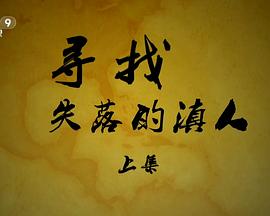 9
寻找
失落的滇人
上集